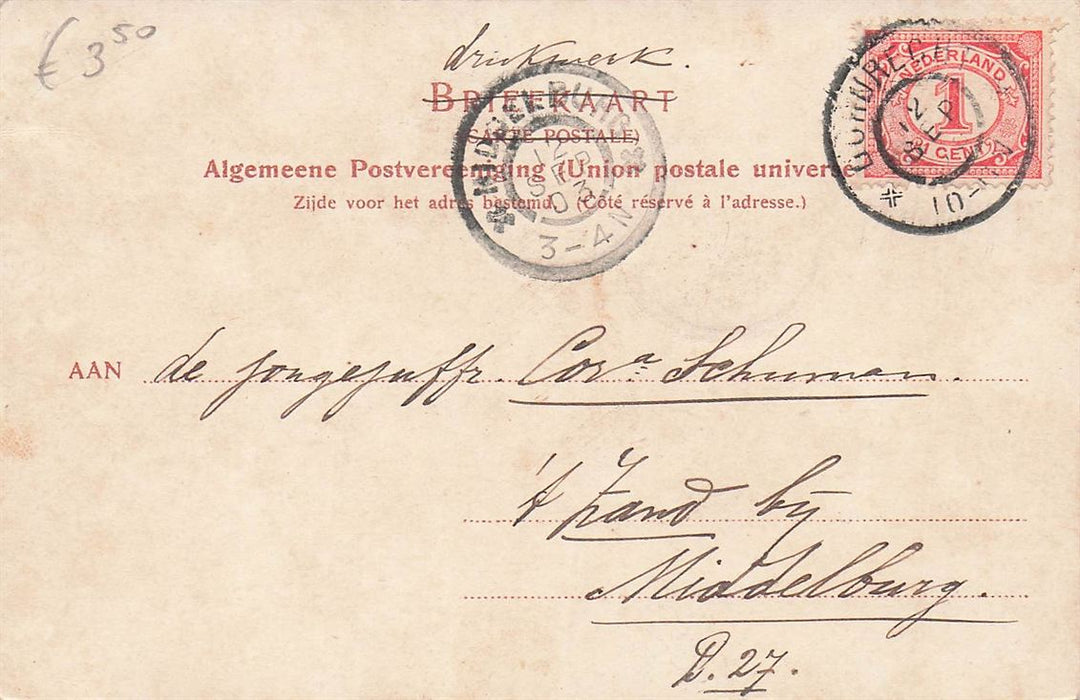 € 3 50
drukwerk.
BRIEFKAART
(CARTE POSTALE)
Algemeene Postvereeniging (Union postale universe
Zijde voor het adres bestemd. (Côté réservé à l'adresse.)
MIDDELBURG
12 SEP 03
3-4N
DORDRECHT
12 SEP
10-
NEDERLAND
1
CENT
AAN de jongejuffr. Cora Schuman.
't Zand bij
Middelburg.
B. 27.